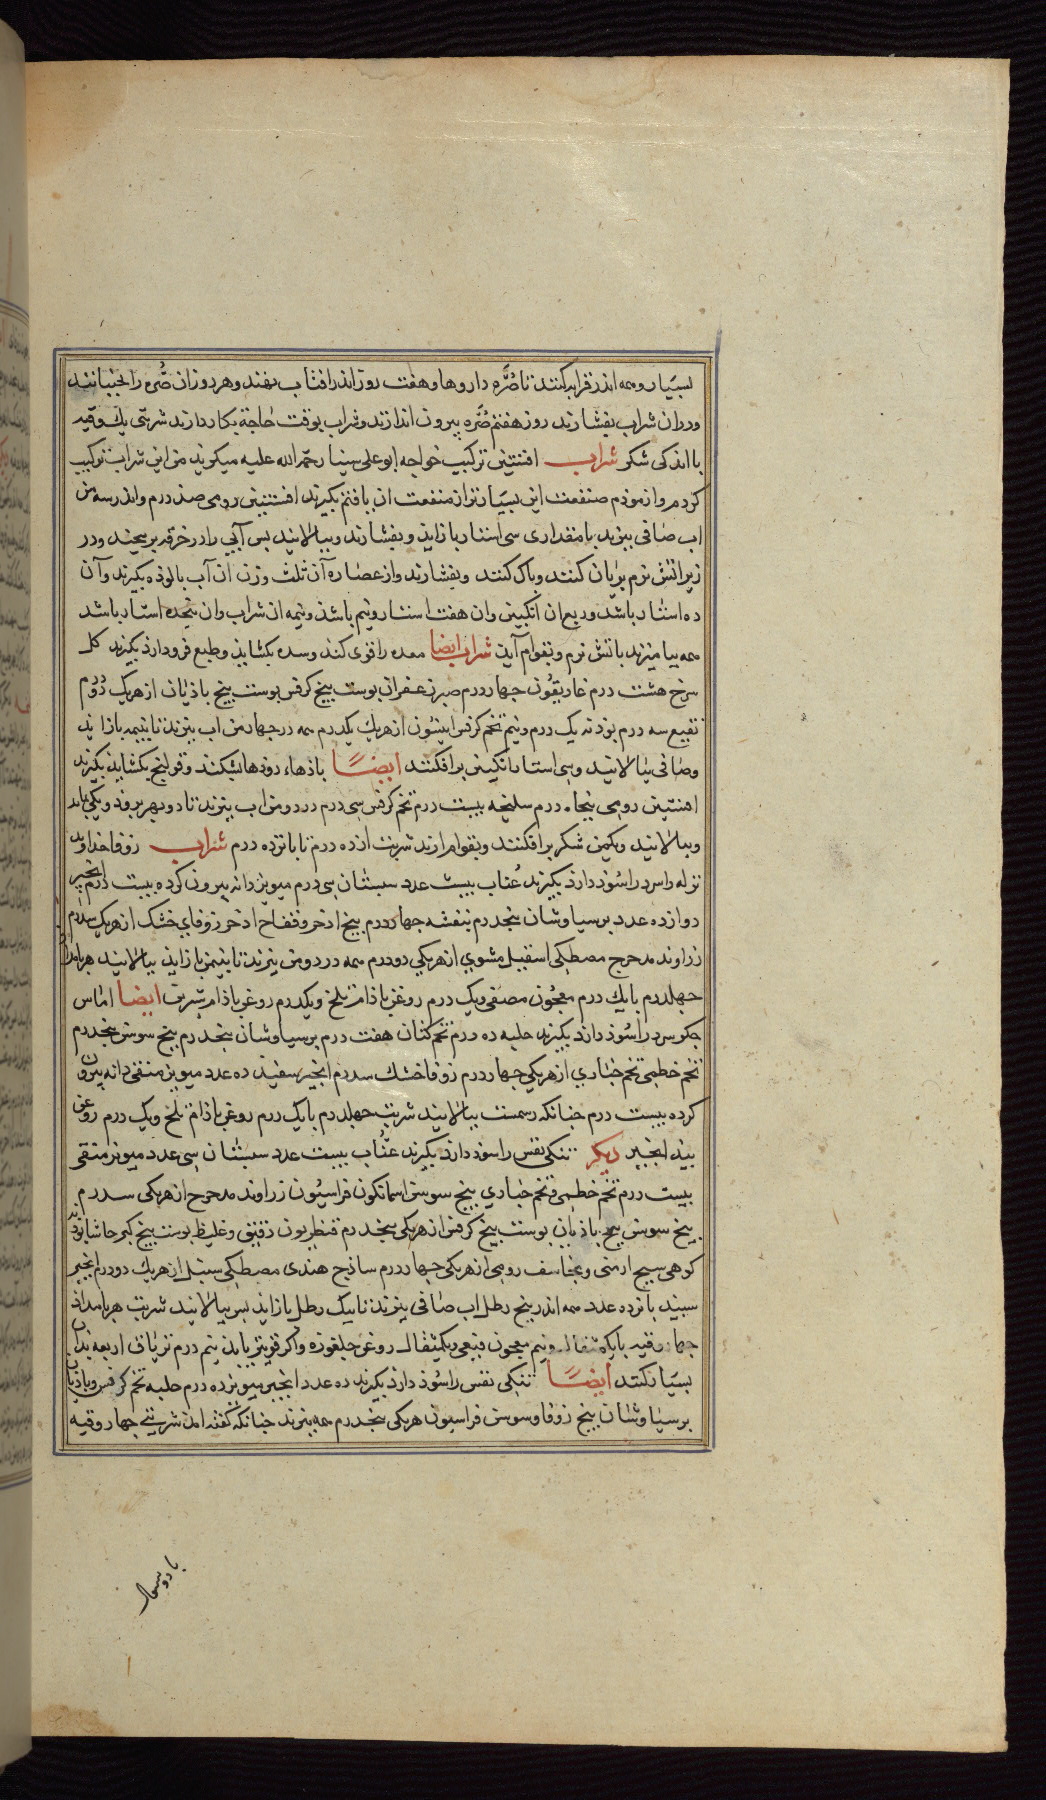 بسیار و همه اندر قرابه کنند تا صُرّه داروها و هفت روز اندر افتاب بنهند و هر روز ان صُره را بجنبانند
و دران شراب بفشارند روز هفتم صُرّه بیرون اندازند و شراب بوقت حاجة بکار دارند شربتی یک وقیه
با اندکی شکر شراب افسنتین ترکیب خواجه ابو علی سینا رحمة الله علیه میکوید من این شراب ترکیب
کردم و ازمودم منفعت این بسیار تر از منفعت ان یافتم بکیرند افسنتین رومی صذ درم و اندر سه من
اب صافی بپزند بامقداری سی استار بازاید و بفشارند و بپالایند بس آبی را در خرقه بر پیچند و در
زیر اتش نرم بریان کنند و باک کنند و بفشارند و از عصاره آن ثلث وزن ان آب بالوذه بکیرند و آن
ده استار باشد و ربع ان انکبین وان هفت استار و نیم باشد و نیمه ان شراب وان بنجده استار باشد
همه بیامیزند باتش نرم و بقوام آید شراب ایضا معده را قوی کند و سده بکشاید و طبع فروذ ارد بکیرند کل
سرخ هشت درم غاریقون جهار درم صبر زعفران بوست بیخ کرفس بوست بیخ باذیان از هریک دو درم
نقیع سه درم بوذنه یک درم و نیم تخم کرفس انیسون از هریک یکدرم همه در جهار من اب بپزند تا بنیمه بازاید
و صافی بپالایند و سی استار انکبین برافکنند ایضاً باذهاء روذها بشکند و قولنج بکشاید بکیرند
افسنتین رومی بنجاه درم سلیخه بیست درم تخم کرفس سی درم در دو من اب بپزند تا دو بهر برود و یکی بماند
و بپالایند و یکمن شکر برافکنند و بقوام ارند شربت از ده درم تا بانزده درم شراب زوفا خداوند
نزله را سرد را سوذ دارد بکیرند عُناب بیست عدد سبستان سی درم میویز دانه بیرون کرده بیست درم انجیر
دوازده عدد برسیاوشان بنجدرم بنفشه جهار درم بیخ اذخر و فقاح اذخر زوفای خشک از هریک سه درم
زراوند مدحرج مصطکی اسقیل مشوی از هریکی دو درم همه در دو من بپزند تا بنیمن بازاید بپالایند هر بامداد
جهلدرم بایک درم معجون مصفی ویک درم روغن باذام تلخ و یکدرم روغن باذام شیرین ایضا اماس
جکر سرد را سوذ دارد بکیرند حلبه ده درم تخم کتان هفت درم برسیاوشان بنجدرم بیخ سوسن بنجدرم
تخم خطمی تخم خبازی از هریکی جهار درم زوفا خشک سه درم انجیر سفید ده عدد میویز منقی دانه بیرون
کرده بیست درم جنانکه رسمست بپالایند شربت جهلدرم بایک درم روغن باذام تلخ ویک درم روغن
بید انجیر دیکر تنکی نفس را سوذ دارد بکیرند عنّاب بیست عدد سبستان سی عدد میویز منقی
بیست درم تخم خطمی و تخم خبازی بیخ سوسن اسمانکون فراسیون زراوند مدحرج از هریکی سه درم
بیخ سوسن بیخ باذیان بوست بیخ کرفس از هریکی بنجدرم قنطریون دقیق و غلیظ بوست بیخ کبر حاشا بوذنه
کوهی سیح ارمنی و برنجاسف رومی از هریکی جهار درم ساذج هندی مصطکی سنبل از هریک دو درم انجیر
سبید بانزده عدد همه اندر بنج رطل اب صافی بپزند تا بیک رطل بازاید بس بپالایند شربت هر بامداد
جهار وقیه بایک مثقال و نیم معجون قیعی و یکمثقال روغن جلغوزه و اکر قویتر باید نیم درم تریاق اربعه بدان
بسیار کنند ایضاً تنکی نفس را سوذ دارد بکیرند ده عدد انجیر میویز ده درم حلبه تخم کرفس و باذیان
برسیاوشان بیخ زوفا و سوسن فراسیون هریکی بنجدرم همه بپزند جنانکه کفته امد شربتی جهار وقیه